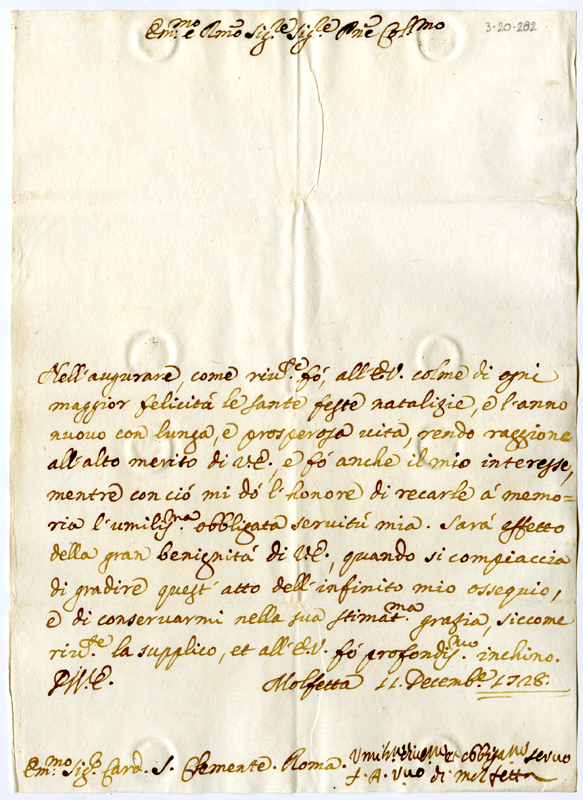 Em.mo e Rmo Sig.re Sig.re Pne Col.mo
3-20-282
Nell'augurare, come riv.te fó, all'E.V. colme di ogni
maggior felicitá le sante feste natalizie, e l'anno
nuovo con lunga, e prosperosa vita, rendo raggione
all'alto merito di V.E. e fó anche il mio interesse,
mentre con ció mi dó l'honore di recarle á memo-
ria l'umiliss.ma obbligata servitú mia. Sará effetto
della gran benignitá di V.E., quando si compiaccia
di gradire quest'atto dell'infinito mio ossequio,
e di conservarmi nella sua stimat.ma grazia, siccome
riv.te la supplico, et all'E.V. fó profondiss.mo inchino.
Di V.E. Molfetta 11. Decemb.e 1728.
Em.mo Sig.r Card. S. Clemente. Roma. Umiliss.mo Divot.mo et obbligat.mo servo
F. A. Vvo di Molfetta